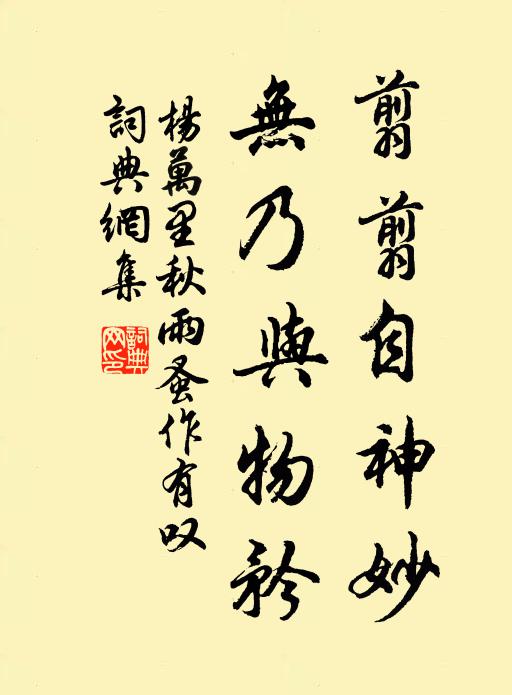 翦翦自神妙
無乃與物矜
楊萬里秋雨蚤作有叹
詞典網集
詞典網印